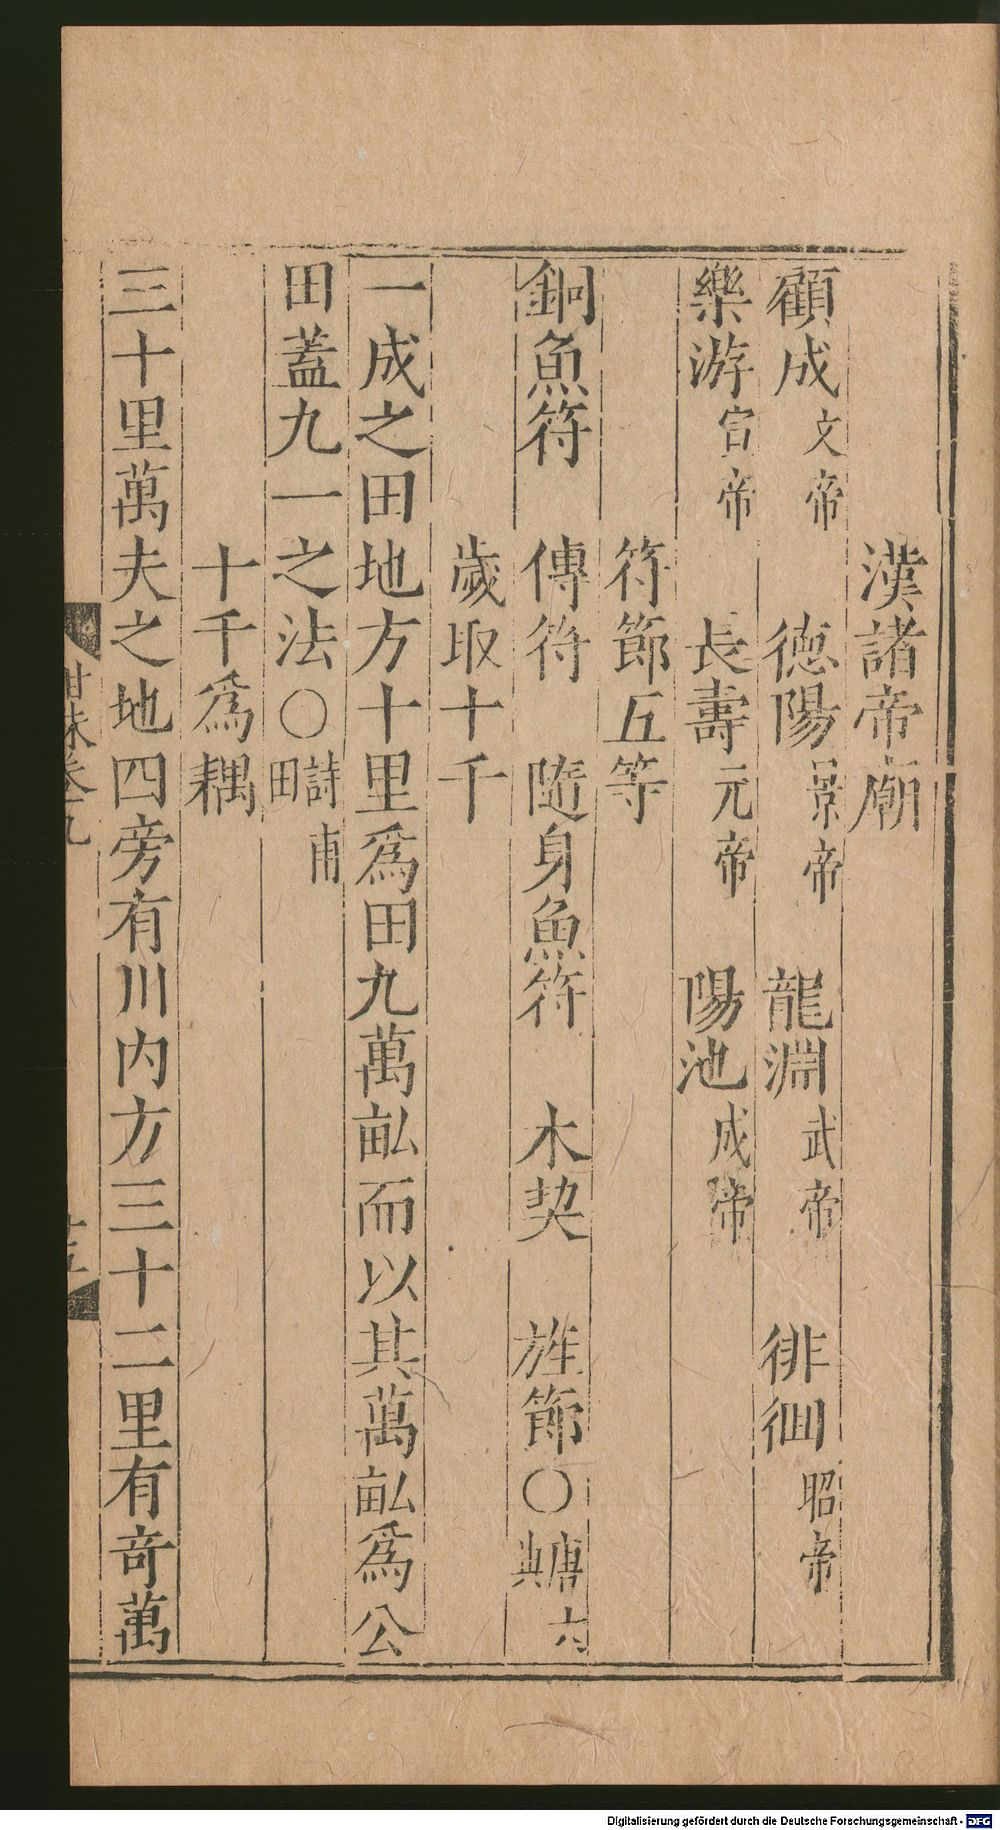 漢諸帝廟
顧成文帝 德陽景帝 龍淵武帝 徘徊昭帝
樂游宣帝 長壽元帝 陽池成帝
符節五等
銅魚符 傳符 隨身魚符 木契 旌節〇唐六典
歲取十千
一成之田地方十里爲田九萬畝而以其萬畝爲公
田蓋九一之法〇詩甫田
十千爲耦
三十里萬夫之地四旁有川內方三十二里有奇萬
甘珠卷九
十五
Digitalisierung gefördert durch die Deutsche Forschungsgemeinschaft - DFG